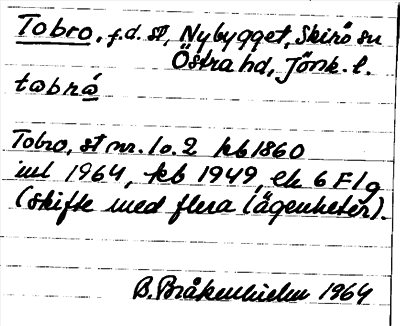 Tobro, f.d. st, Nybygget, Skirö sn
Östra hd, Jönk. l.
tωbrȧ
Tobro, st nr. 1 o. 2 kb 1860
inl 1964, kb 1949, ek 6 F 1 g
(skifte med flera lägenheter).
B. Bråkenhielm 1964